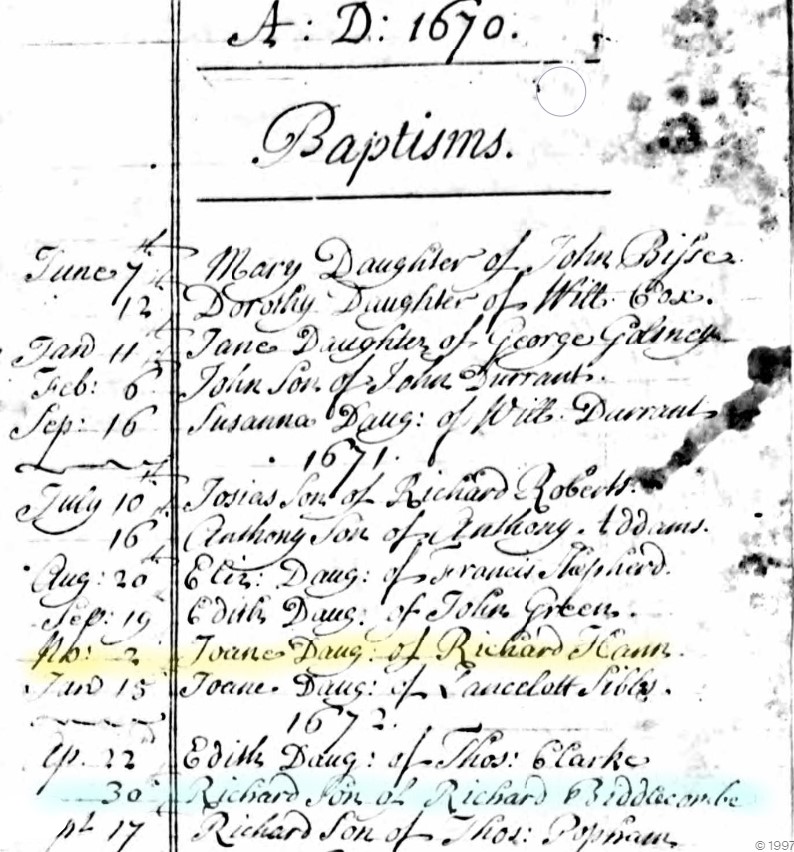 A: D: 1670.
Baptisms.
June 7th Mary Daughter of John Bisse
12 Dorothy Daughter of Will: Cox.
Jan 11th Jane Daughter of George
Feb: 6 John Son of John Durrant.
Sep: 16 Susanna Daug: of Will: Durrant
1671.
July 10th Josias Son of Richard Roberts.
16 Anthony Son of Anthony Addams.
Aug: 20th Eliz: Daug: of Francis Shepherd.
Sep: 19 Edith Daug: of John Green.
2 Joane Daug: of Richard Hann.
Jan 15 Joane Daug: of Lancelott Sibbs.
1672.
22d Edith Daug: of Thos: Clarke
30 Richard Son of Richard Biddlecombe
17 Richard Son of Thos: Popham
© 1997